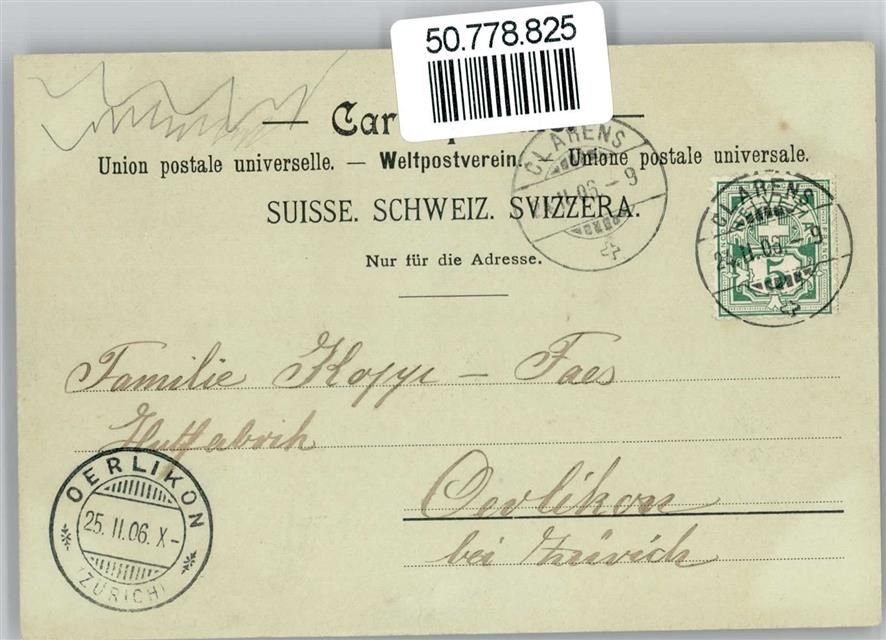 50.778.825
Car
Union postale universelle. — Weltpostverein. — Unione postale universale.
SUISSE. SCHWEIZ. SVIZZERA.
Nur für die Adresse.
CLARENS
II.06.-9
CLARENS
24.II.06.-9
5
Familie Kopp - Faes
Hutfabrik
Oerlikon
bei Zürich
OERLIKON
25.II.06.X-
(ZÜRICH)